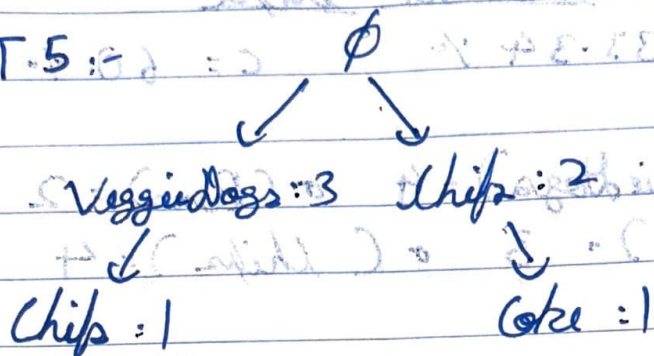 T.5 :- ϕ
VeggieDogs : 3 Chips : 2
Chips : 1 Coke : 1